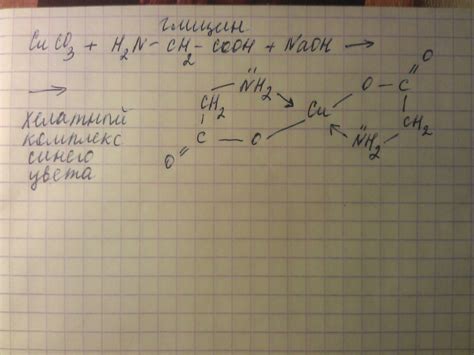 глицин
CuCO3 + H2N – CH2 – COOH + NaOH →
→
хелатный
комплекс
синего
цвета
NH2 → Cu O – C O
CH2 CH2
O C – O NH2